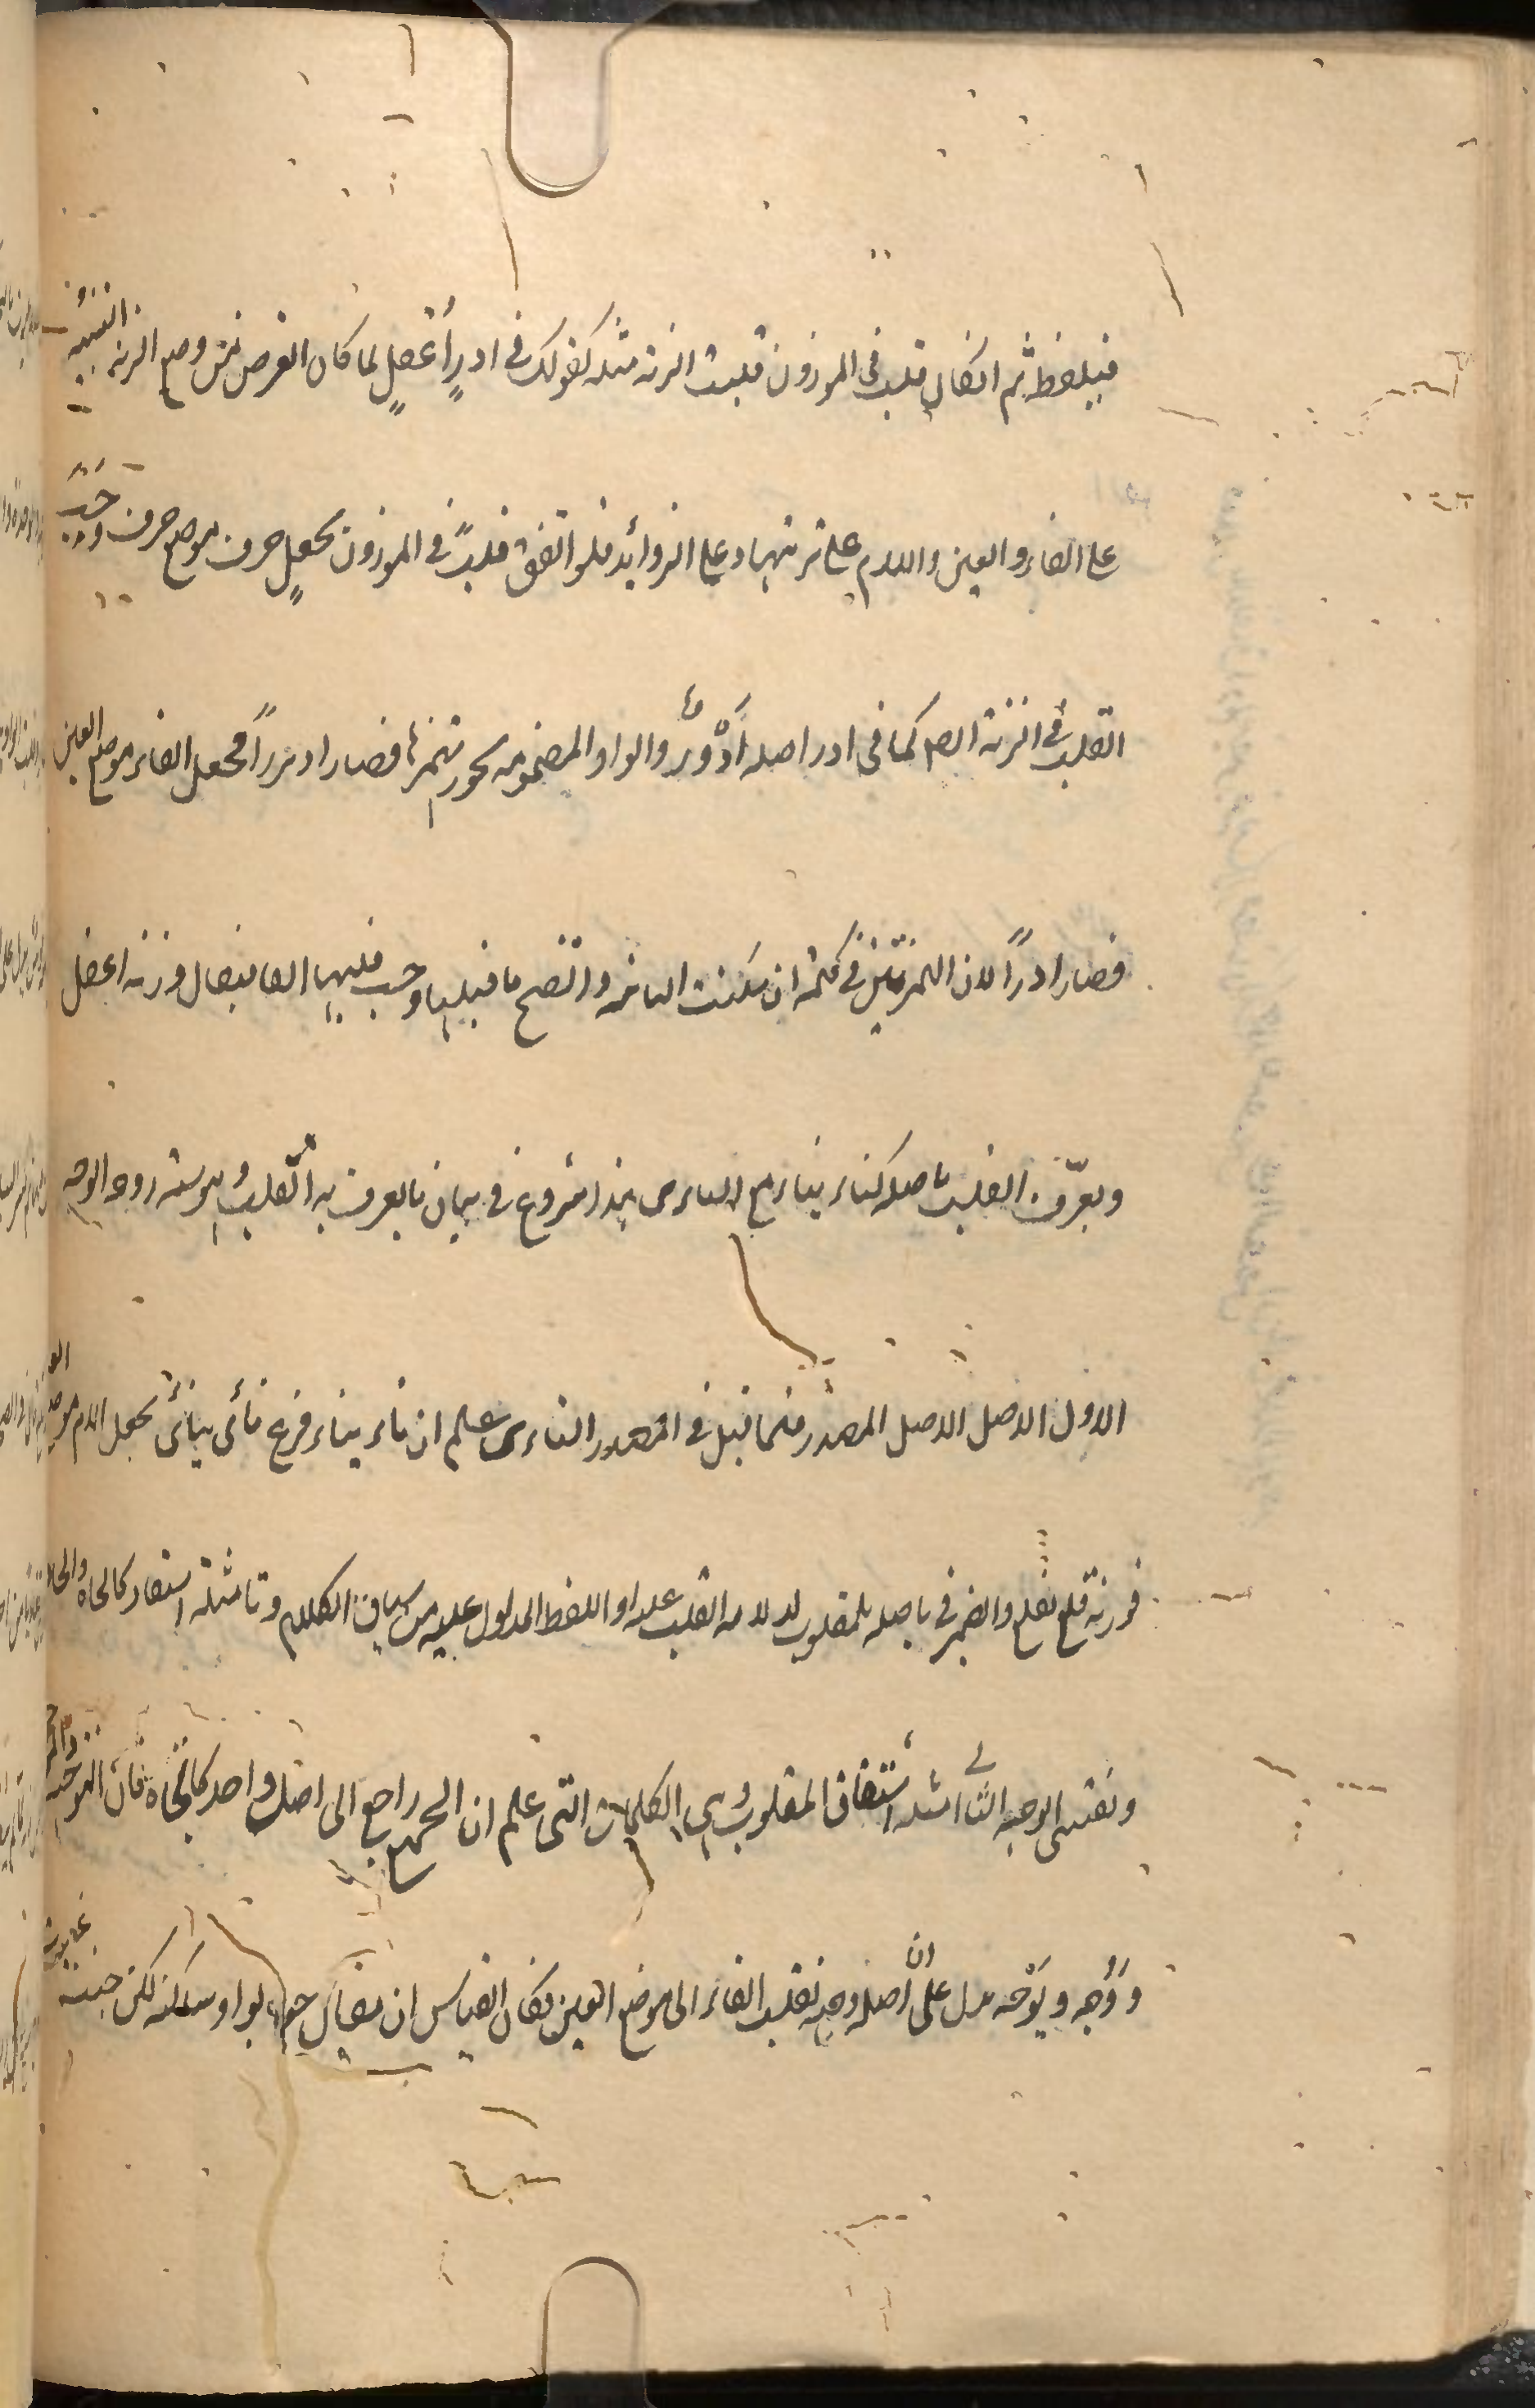 فبلفظه ثم ان كان قلب فى الموزون قلبت الزنة مثله كقولك فى ادر أعفل لما كان الغرض من وضع الزنة التنبيه
على الفاء والعين واللام على ترتيبها وعلى الزوائد فلو اتفق قلب فى الموزون بجعل حرف موضع حرف وجب
القلب فى الزنة ايضا كما فى ادر اصله أدْوُر والواو المضمومة يجوز همزها فصار ادءرا فجعل الفاء موضع العين
فصار اادرا لان الهمزتين فى كلمة ان سكنت الثانية وانفتح ما قبلها وجب قلبها الفا فيقال وزنه اعفل
ويعرف القلب باصله كناء يناء مع الناى هذا شروع فى بيان ما يعرف به القلب وهو ستة اوجه الوجه
الاول الاصل الاصل المصدر فلما قيل فى المصدر الناى علم ان ناء يناء فرع نأى ينأى بجعل اللام موضع العين
فوزنه فلع يفلع والضمير فى باصله للمقلوب لدلالة القلب عليه او اللفظ المدلول عليه من سياق الكلام وبامثلة اشتقاقه كالجاه والحادى
والقسى الوجه الثانى امثلة اشتقاق المقلوب وهى الكلمات التى علم ان الجميع راجع الى اصل واحد كالجاه فان التوجه
ووُجه ويَوْجه يدل على ان اصله وجه نقلب الفاء الى موضع العين فكان القياس ان يقال جوه بواو ساكنة لكن حيث